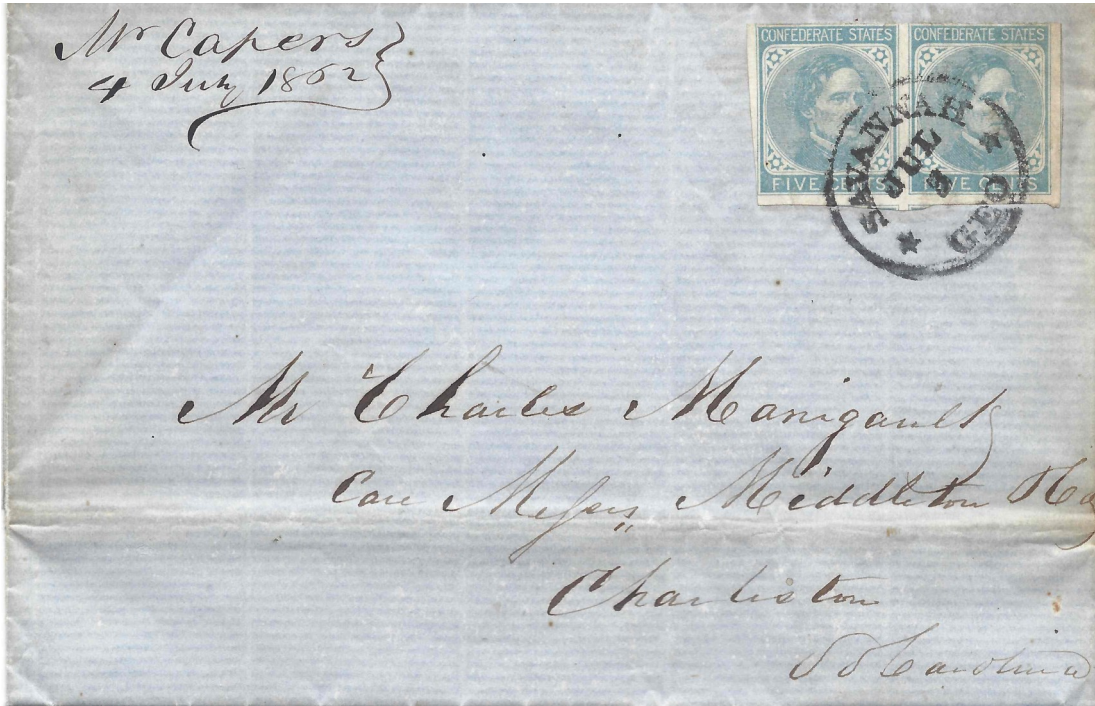 Mr Capers
4 July 1862
CONFEDERATE STATES CONFEDERATE STATES
FIVE CENTS FIVE CENTS
SAVANNAH
JUL
GEO
Mr Charles Manigault
Care Messrs Middleton &
Charleston
So Carolina